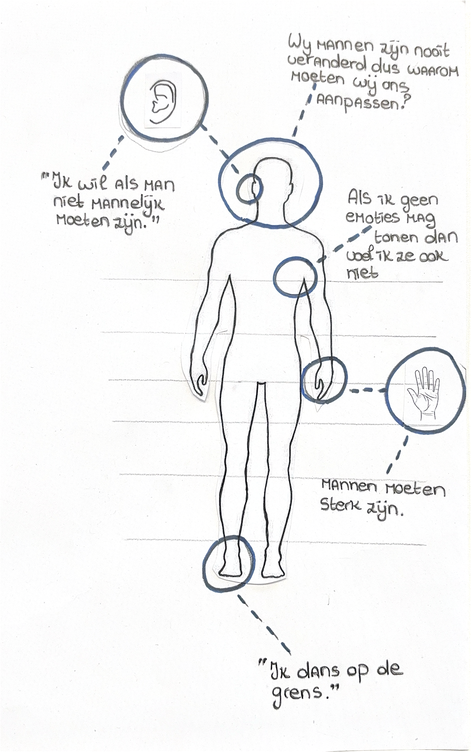 Wij mannen zijn nooit
veranderd dus waarom
moeten wij ons
aanpassen?
"Ik wil als man
niet mannelijk
moeten zijn."
Als ik geen
emoties mag
tonen dan
voel ik ze ook
niet
Mannen moeten
sterk zijn.
"Ik dans op de
grens."